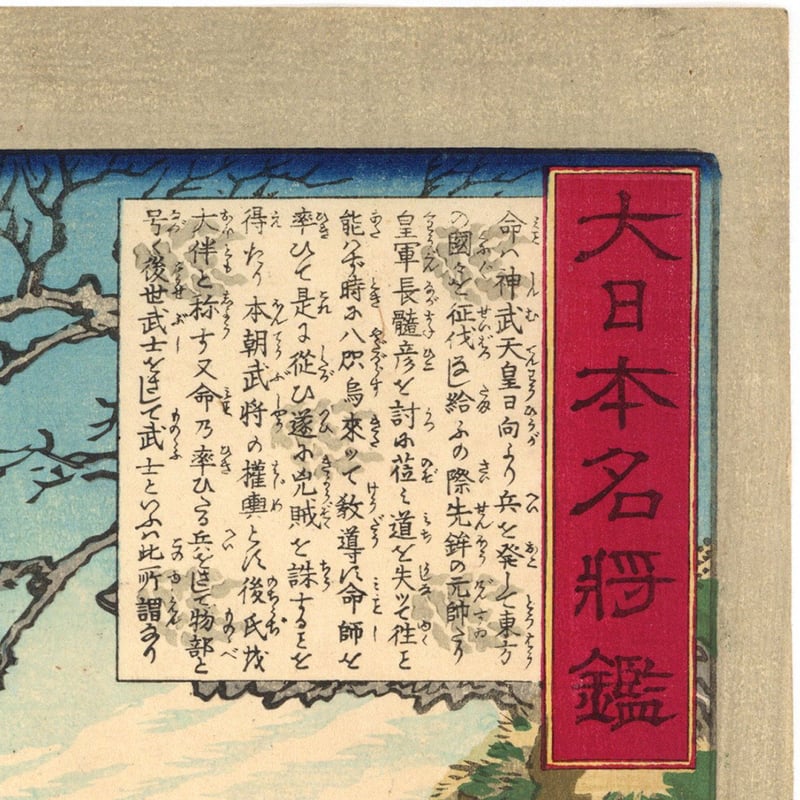 大日本名將鑑
命ハ神武天皇日向より兵を発して東方
の國々を征伐し給ふの際先鉾の元帥たり
皇軍長髓彦を討に莅ミ道を失ッて往こと
能ハず時に八咫烏來ッて教導に命師を
率ひて是に從ひ遂に兇賊を誅することを
得たり本朝武將の權輿とに後氏を
大伴と称す又命乃率ひたる兵をさして物部と
号く後世武士をさして武士といふハ此所謂なり